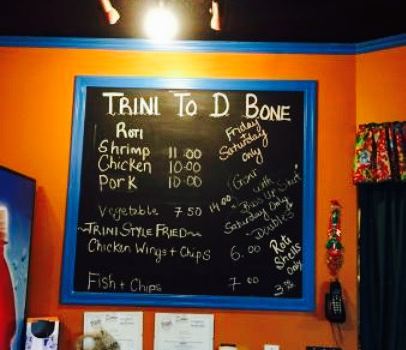 TRINI TO D BONE
Roti
Shrimp 11.00
Chicken 10.00
Pork 10.00
Vegetable 7.50
~TRINI STYLE FRIED~
Chicken Wings + Chips 6.00
Fish + Chips 7.00
Friday
Saturday
only
Goat
with
"Buss Up Shot"
14.00 Saturday Only
Doubles
Roti
Shells
only